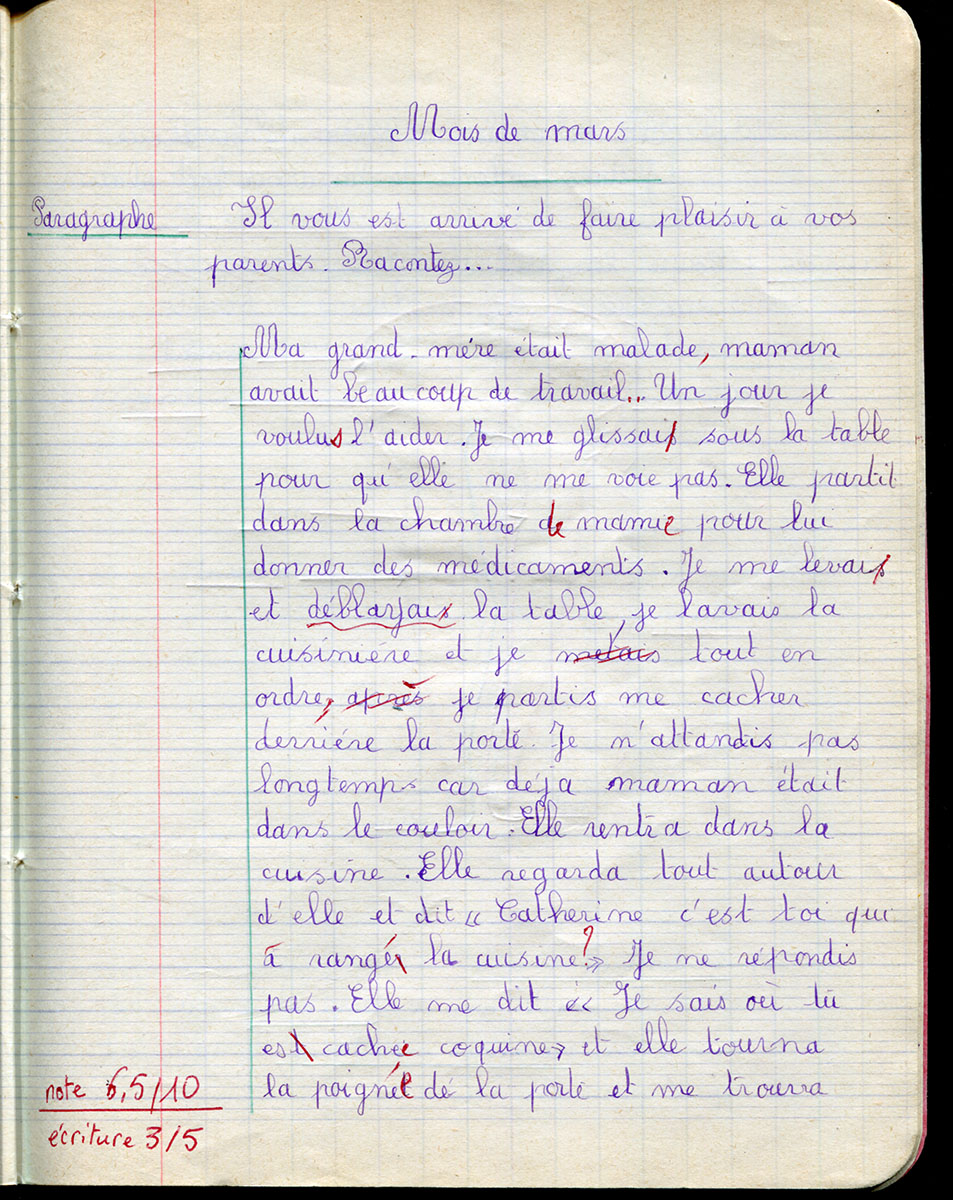 Mois de mars
Paragraphe Il vous est arrivé de faire plaisir à vos
parents. Racontez...
Ma grand-mére était malade, maman
avait beaucoup de travail.. Un jour je
voulus l'aider. Je me glissais sous la table
pour qu'elle ne me voie pas. Elle partit
dans la chambre de mamie pour lui
donner des médicaments. Je me levais
et déblarjais la table, je lavais la
cuisiniére et je metais tout en
ordre, après je partis me cacher
derriére la porte. Je n'attandis pas
longtemps car déja maman était
dans le couloir. Elle rentra dans la
cuisine. Elle regarda tout autour
d'elle et dit « Catherine c'est toi qui
à ranger la cuisine? » Je ne répondis
pas. Elle me dit « Je sais où tu
est cachée coquine » et elle tourna
la poignée de la porte et me trouva
note 6,5/10
écriture 3/5